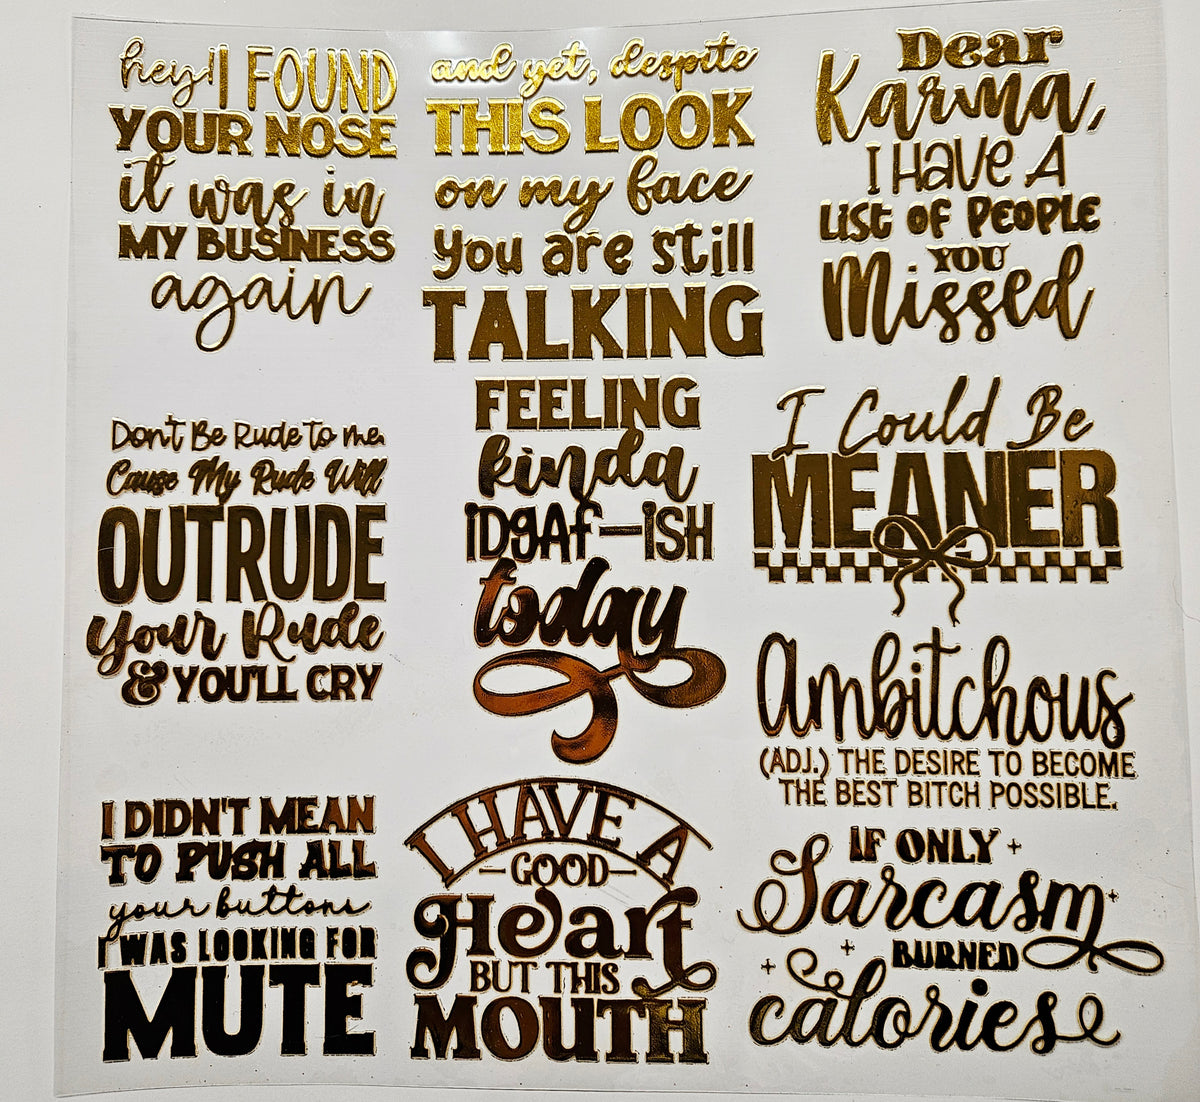 hey! I FOUND
YOUR NOSE
it was in
MY BUSINESS
again
and yet, despite
THIS LOOK
on my face
you are still
TALKING
Dear
Karma,
I Have A
List of People
YOU
Missed
Don't Be Rude to me.
Cause My Rude Will
OUTRUDE
Your Rude
& YOU'LL CRY
FEELING
kinda
iDgAf-iSH
today
I Could Be
MEANER
Ambitchous
(ADJ.) THE DESIRE TO BECOME
THE BEST BITCH POSSIBLE.
I DIDN'T MEAN
TO PUSH ALL
your buttons
I WAS LOOKING FOR
MUTE
I HAVE A
-GOOD-
Heart
BUT THIS
MOUTH
IF ONLY
Sarcasm
BURNED
calories